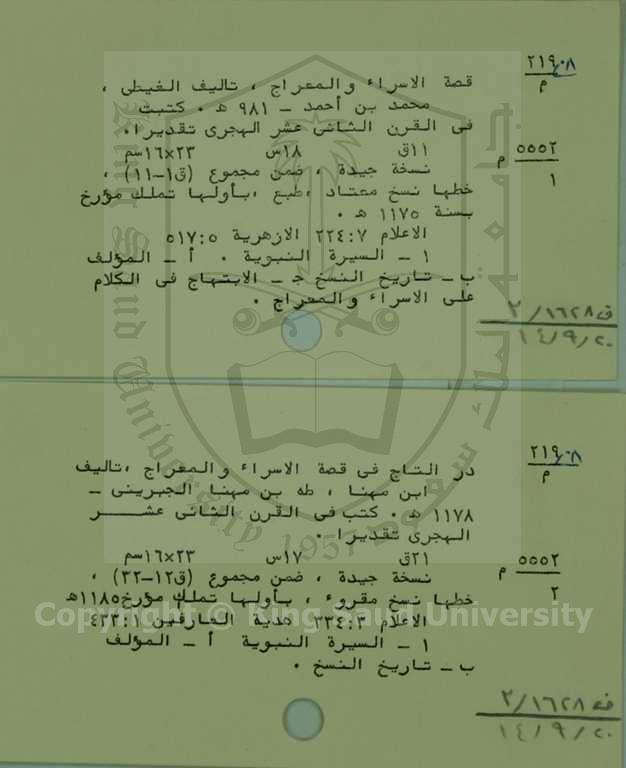 ٢١٩٫٠٨
م
قصة الاسراء والمعراج ، تاليف الغيطى ،
محمد بن أحمد ــ ٩٨١ هـ . كتبت
فى القرن الثانى عشر الهجرى تقديرا.
٥٥٥٢ م
١
١١ق ١٨س ٢٣×١٦سم
نسخة جيدة ، ضمن مجموع (ق١-١١) ،
خطها نسخ معتاد ،طبع ،بأولها تملك مؤرخ
بسنة ١١٧٥ هـ .
الاعلام ٢٢٤:٧ الازهرية ٥١٧:٥
١ ــ السيرة النبوية . أ ــ المؤلف
ب ــ تاريخ النسخ جـ ــ الابتهاج فى الكلام
على الاسراء والمعراج .
ف ١٦٢٨/ ٢
١٤/٩/٢٠
٢١٩٫٠٨
م
در التاج فى قصة الاسراء والمعراج ،تاليف
ابن مهنا ، طه بن مهنا الجبرينى ــ
١١٧٨ هـ . كتب فى القرن الثانى عشــــر
الهجرى تقديرا .
٥٥٥٢ م
٢
٢١ق ١٧س ٢٣×١٦سم
نسخة جيدة ، ضمن مجموع (ق١٢-٣٢) ،
خطها نسخ مقروء ، بأولها تملك مؤرخ١١٨٥هـ
الاعلام ٣٣٤:٣ هدية العارفين ٤٣٣:١
١ ــ السيرة النبوية أ ــ المؤلف
ب ــ تاريخ النسخ .
ف ١٦٢٨/ ٢
١٤/٩/٢٠
Copyright © King Saud University
جامعة الملك سعود
King Saud University
1957